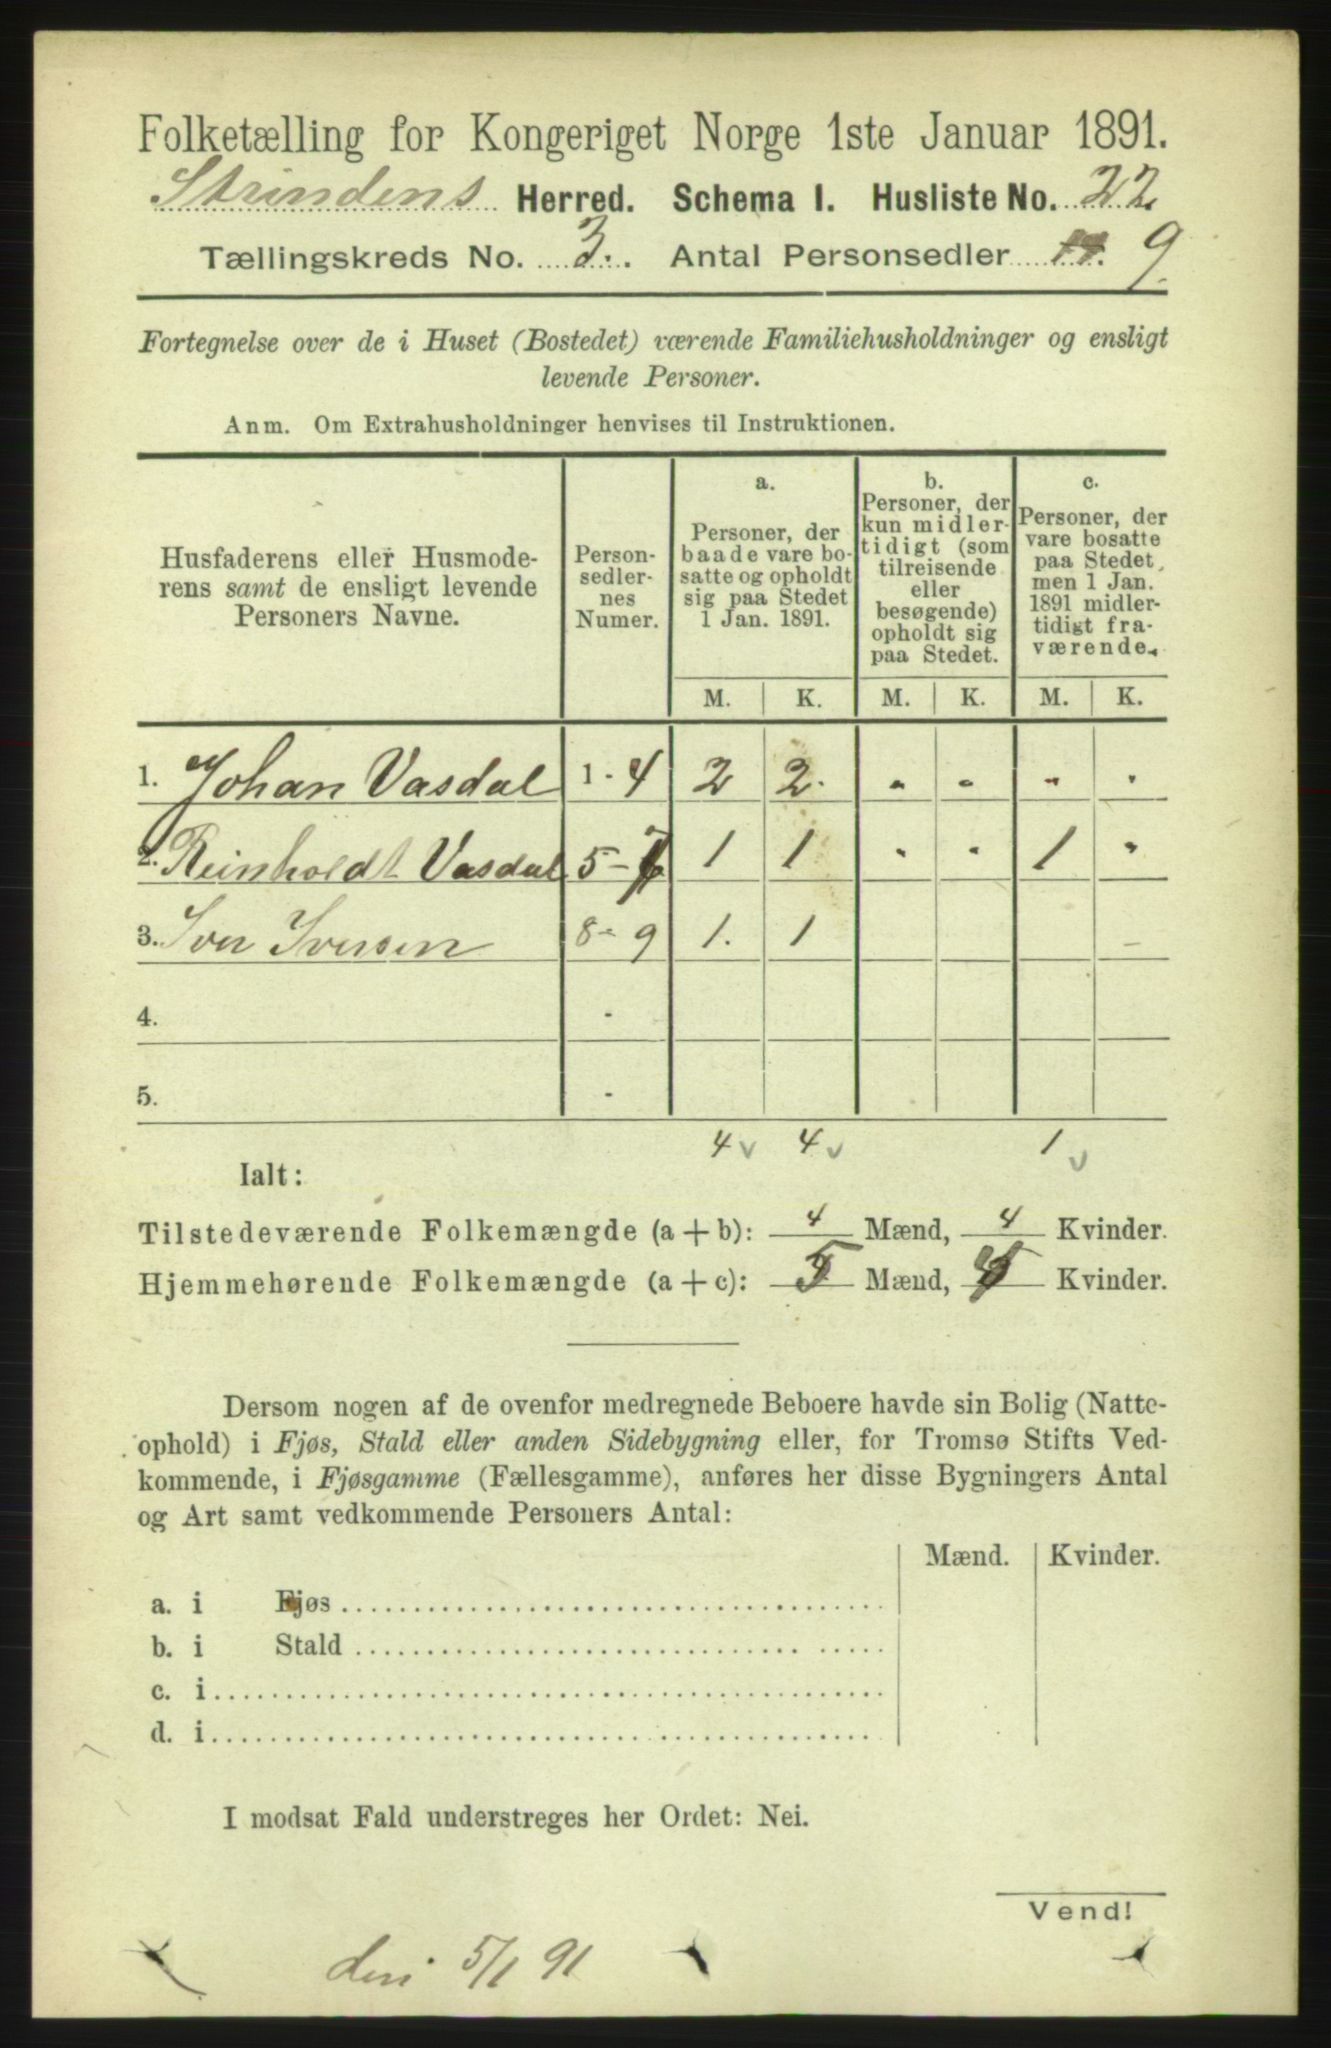 Folketælling for Kongeriget Norge 1ste Januar 1891.
Strindens Herred. Schema I. Husliste No. 22.
Tællingskreds No. 3. Antal Personsedler 9.
Fortegnelse over de i Huset (Bostedet) værende Familiehusholdninger og ensligt
levende Personer.
Anm. Om Extrahusholdninger henvises til Instruktionen.
Husfaderens eller Husmode-
rens samt de ensligt levende
Personers Navne.
Person-
sedler-
nes
Numer.
a.
Personer, der
baade vare bo-
satte og opholdt
sig paa Stedet
1 Jan. 1891.
b.
Personer, der
kun midler-
tidigt (som
tilreisende
eller
besøgende)
opholdt sig
paa Stedet.
c.
Personer, der
vare bosatte
paa Stedet,
men 1 Jan.
1891 midler-
tidigt fra-
værende.
M. K. M. K. M. K.
1. Johan Vasdal 1 - 4 2 2 - - - -
2. Reinholdt Vasdal 5 - 7 1 1 - - 1 -
3. Iver Iversen 8 - 9 1. 1
4. -
5. -
4 v 4 v 1 v
Ialt:
Tilstedeværende Folkemængde (a + b): 4 Mænd, 4 Kvinder.
Hjemmehørende Folkemængde (a + c): 5 Mænd, 4 Kvinder.
Dersom nogen af de ovenfor medregnede Beboere havde sin Bolig (Natte-
ophold) i Fjøs, Stald eller anden Sidebygning eller, for Tromsø Stifts Ved-
kommende, i Fjøsgamme (Fællesgamme), anføres her disse Bygningers Antal
og Art samt vedkommende Personers Antal:
Mænd. Kvinder.
a. i Fjøs
b. i Stald
c. i
d. i
I modsat Fald understreges her Ordet: Nei.
Vend!
den 5/1 91